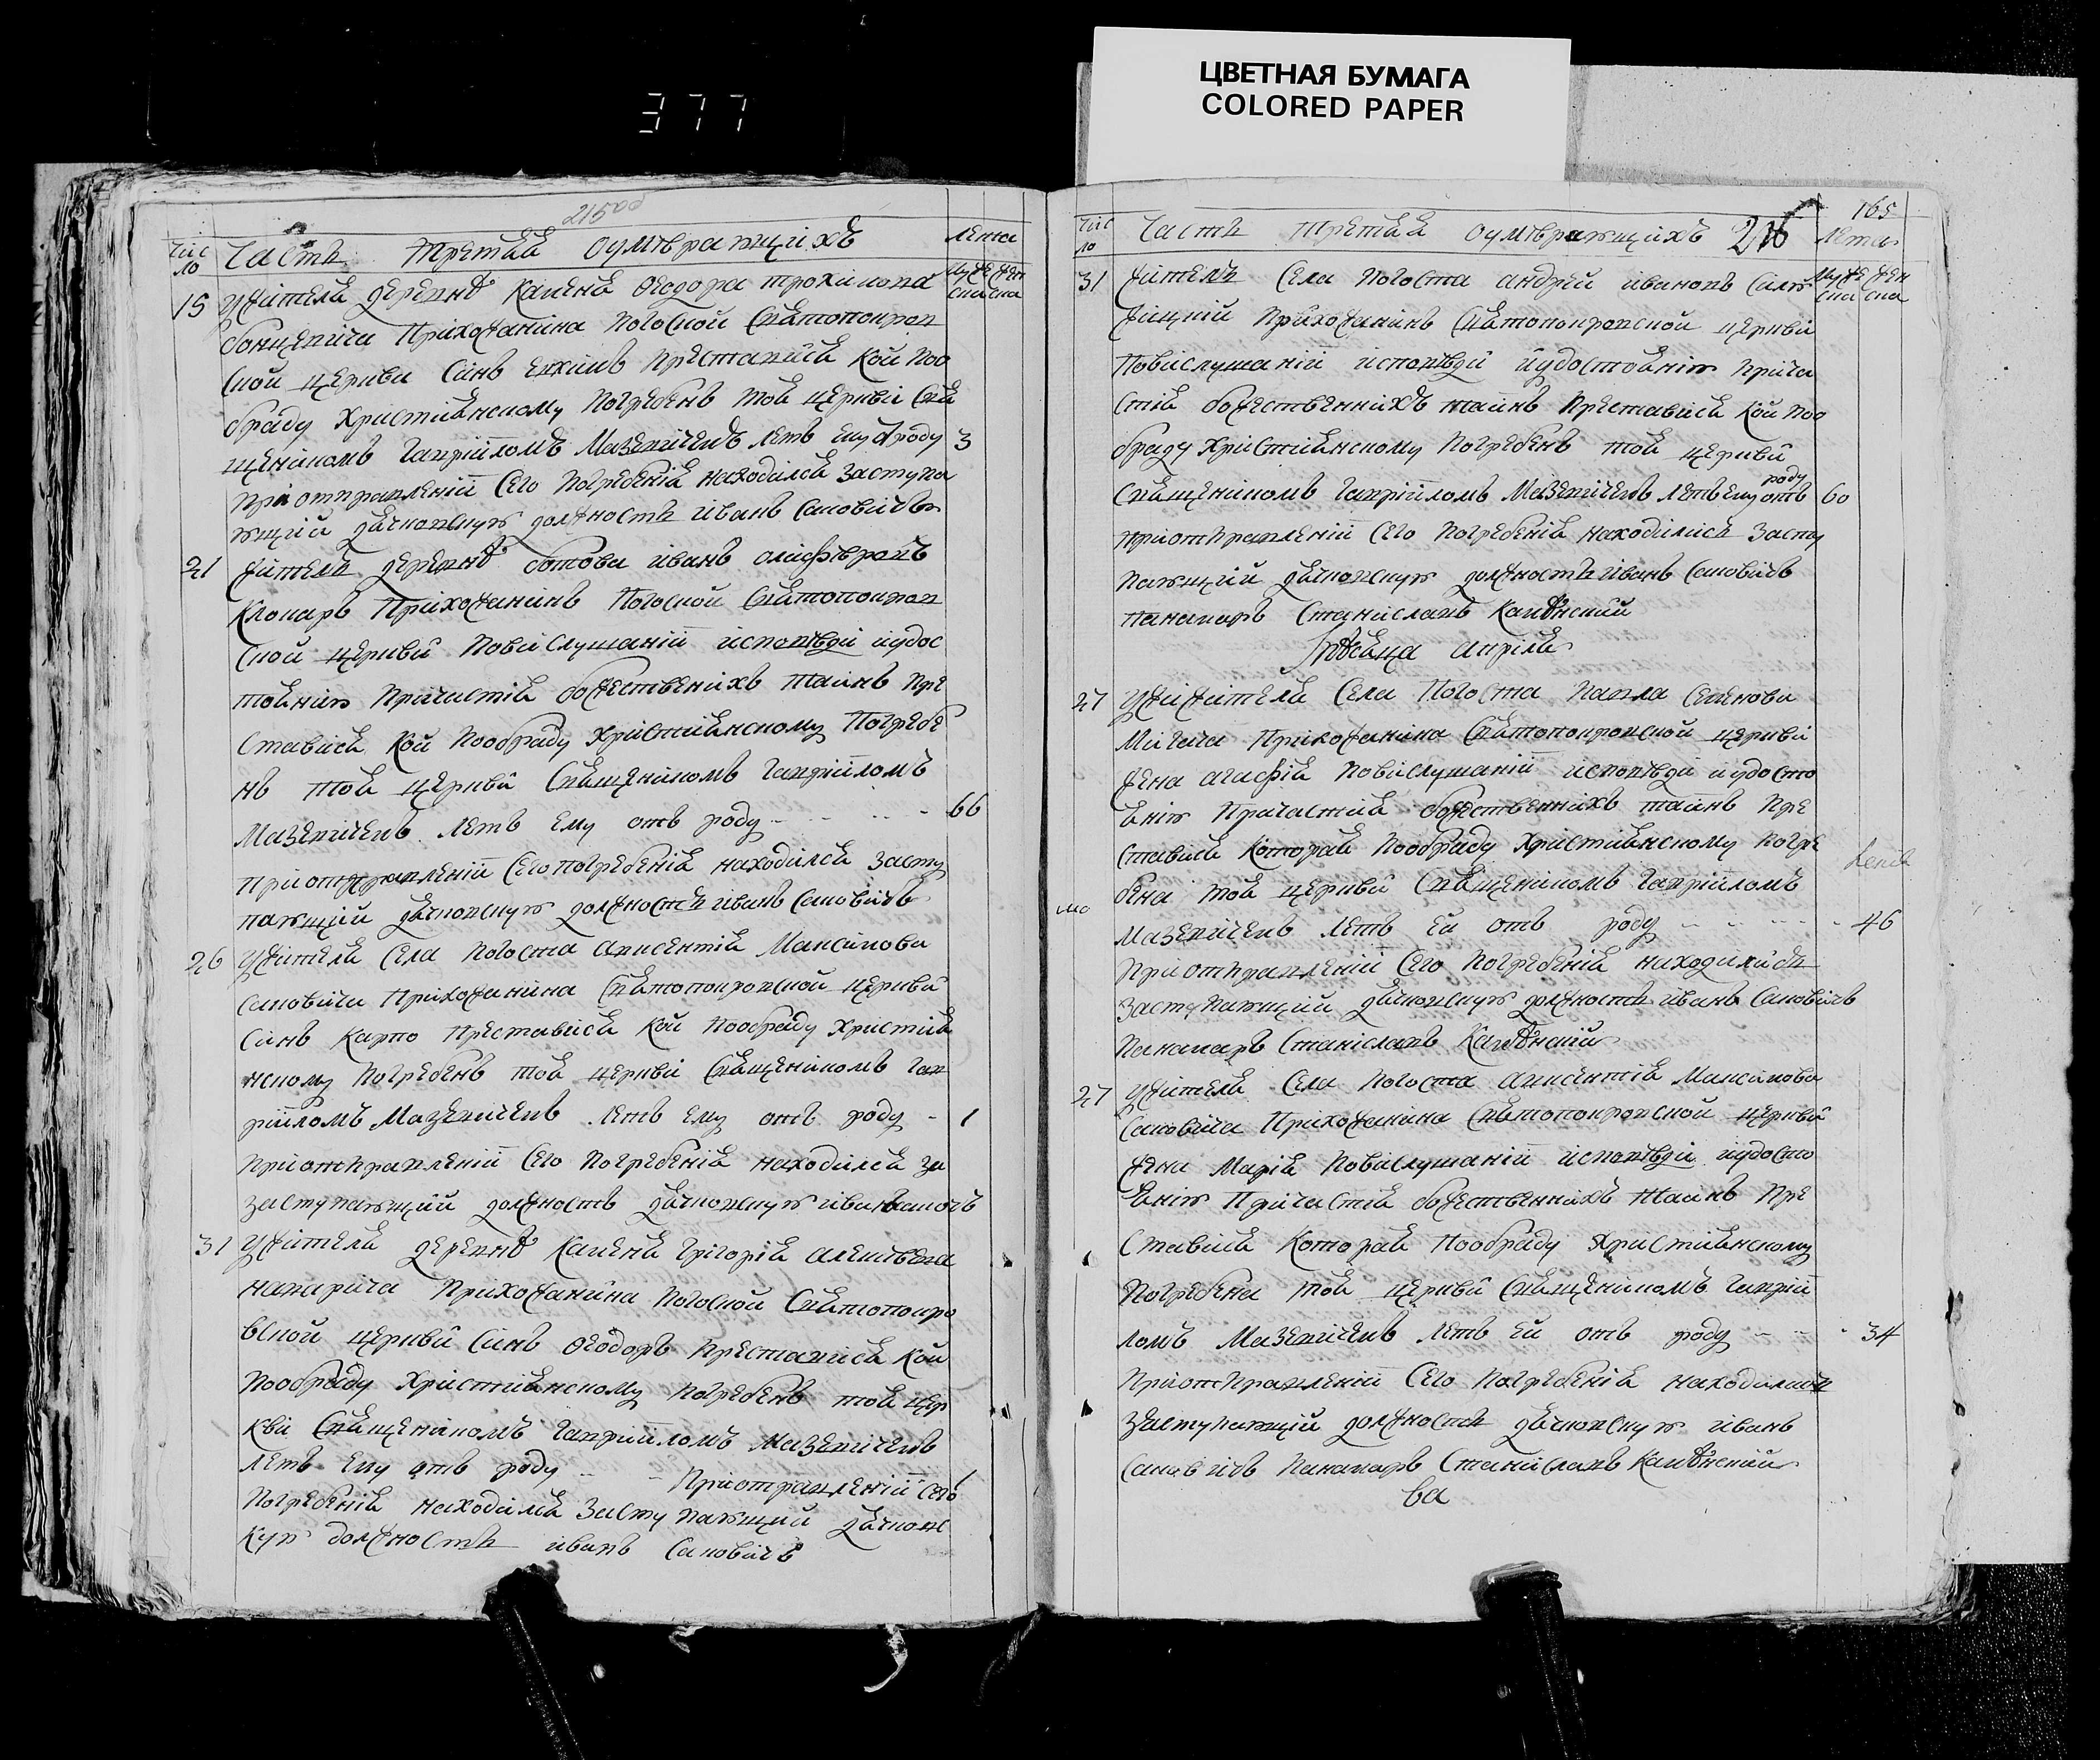 377
ЦВЕТНАЯ БУМАГА
COLORED PAPER
215об
Чис
ло
Часть Третая оумѣрающихъ
Лета
Муже
ска
жен
ска
15
Ужителя деревнѣ Каменя Ѳеодора трохимова
Прихожанина Погоской Святопокров
ской церкви Синъ Екхимъ Преставися Кой поо
браду Християнскому Погребенъ тоя церкви Свя
щеникомъ Гавріиломъ Мазевичемъ летъ ему ѿ роду 3
При отправленіи Сего Погребенія находился Заступа
ющий дячковскую должность иванъ Сановичъ
21
Житель деревнѣ Ботова иванъ олиѳѣровъ
Клокаръ Прихожанинъ Погоской Святопокров
ской церкви Повислушаніи исповѣди иудос
тоянию Причастія божественихъ таинъ Пре
ставися Кой Пообраду Християнскому Погребе
нъ тоя церкви Священикомъ Гавріиломъ
Мазевичемъ летъ ему отъ роду 66
При отправленіи Сего погребенія находился Засту
пающий дячковскую должность иванъ Сановичъ
26
Ужителя Села Погоста Авксентія Максимова
Сановича Прихожанина Святопокровской церкви
Синъ Карпо Преставися Кой Пообраду Християн
нскому Погребенъ тоя церкви Священикомъ Гав
ріиломъ Мазевичемъ летъ ему отъ роду 1
При отправленіи Сего Погребенія находился за
заступающий должность дячковскую иванъ
31
Ужителя деревнѣ Каменя Григорія
Прихожанина Погоской Святопокро
вской церкви Синъ Ѳеодоръ Преставися Кой
Пообраду Християнскому Погребенъ тоя цер
кви Священикомъ Гавріиломъ Мазевичемъ
летъ ему отъ роду 1 При отправленіи Сего
Погребенія находился Заступающий дячковс
кую должность иванъ Сановичъ
Чис
ло
Часть Третая оумѣрающихъ
216
165
Лета
Муже
ска
жен
ска
31
Житель Села Погоста андрей ивановъ
Прихожанинъ Святопокровской церкви
Повислушаніи исповѣди иудостоянию Прича
стія божественнихъ таинъ Преставися Кой Поо
браду Християнскому Погребенъ тоя церкви
Священикомъ Гавріиломъ Мазевичемъ летъ ему отъ роду 60
При отправленіи Сего Погребенія находились Засту
пающий дячковскую должность иванъ Сановичъ
Панамаръ Станиславъ
Мѣсяца априля
27
Ужителя Села Погоста Павла Семенова
Прихожанина Святопокровской церкви
Жена агаѳія Повислушаніи исповѣди иудосто
янию Причастия божественнихъ таинъ Пре
ставися Которая Пообраду Християнскому погре
бена тоя церкви Священикомъ Гавріиломъ
Мазевичемъ летъ ей отъ роду 46
При отправленіи Сего Погребенія находились
Заступающий дячковскую должность иванъ Сановичъ
Панамаръ Станиславъ
27
Ужителя Села Погоста Авксентія Максимова
Сановича Прихожанина Святопокровской церкви
Жена Марія Повислушаніи исповѣди иудосто
янию Причастія божественнихъ таинъ Пре
ставися Которая Пообраду Християнскому
Погребена тоя церкви Священикомъ Гавріи
ломъ Мазевичемъ летъ ей отъ роду 34
При отправленіи Сего Погребенія находились
Заступающий должность дячковскую иванъ
Сановичъ Панамаръ Станиславъ